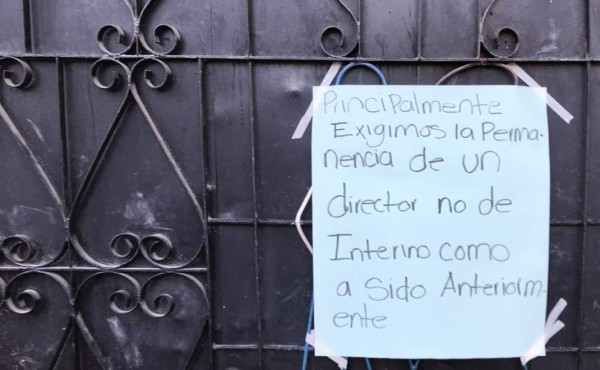 Principalmente
Exigimos la Perma-
nencia de un
director no de
Interino como
a sido Anteriorm-
ente.